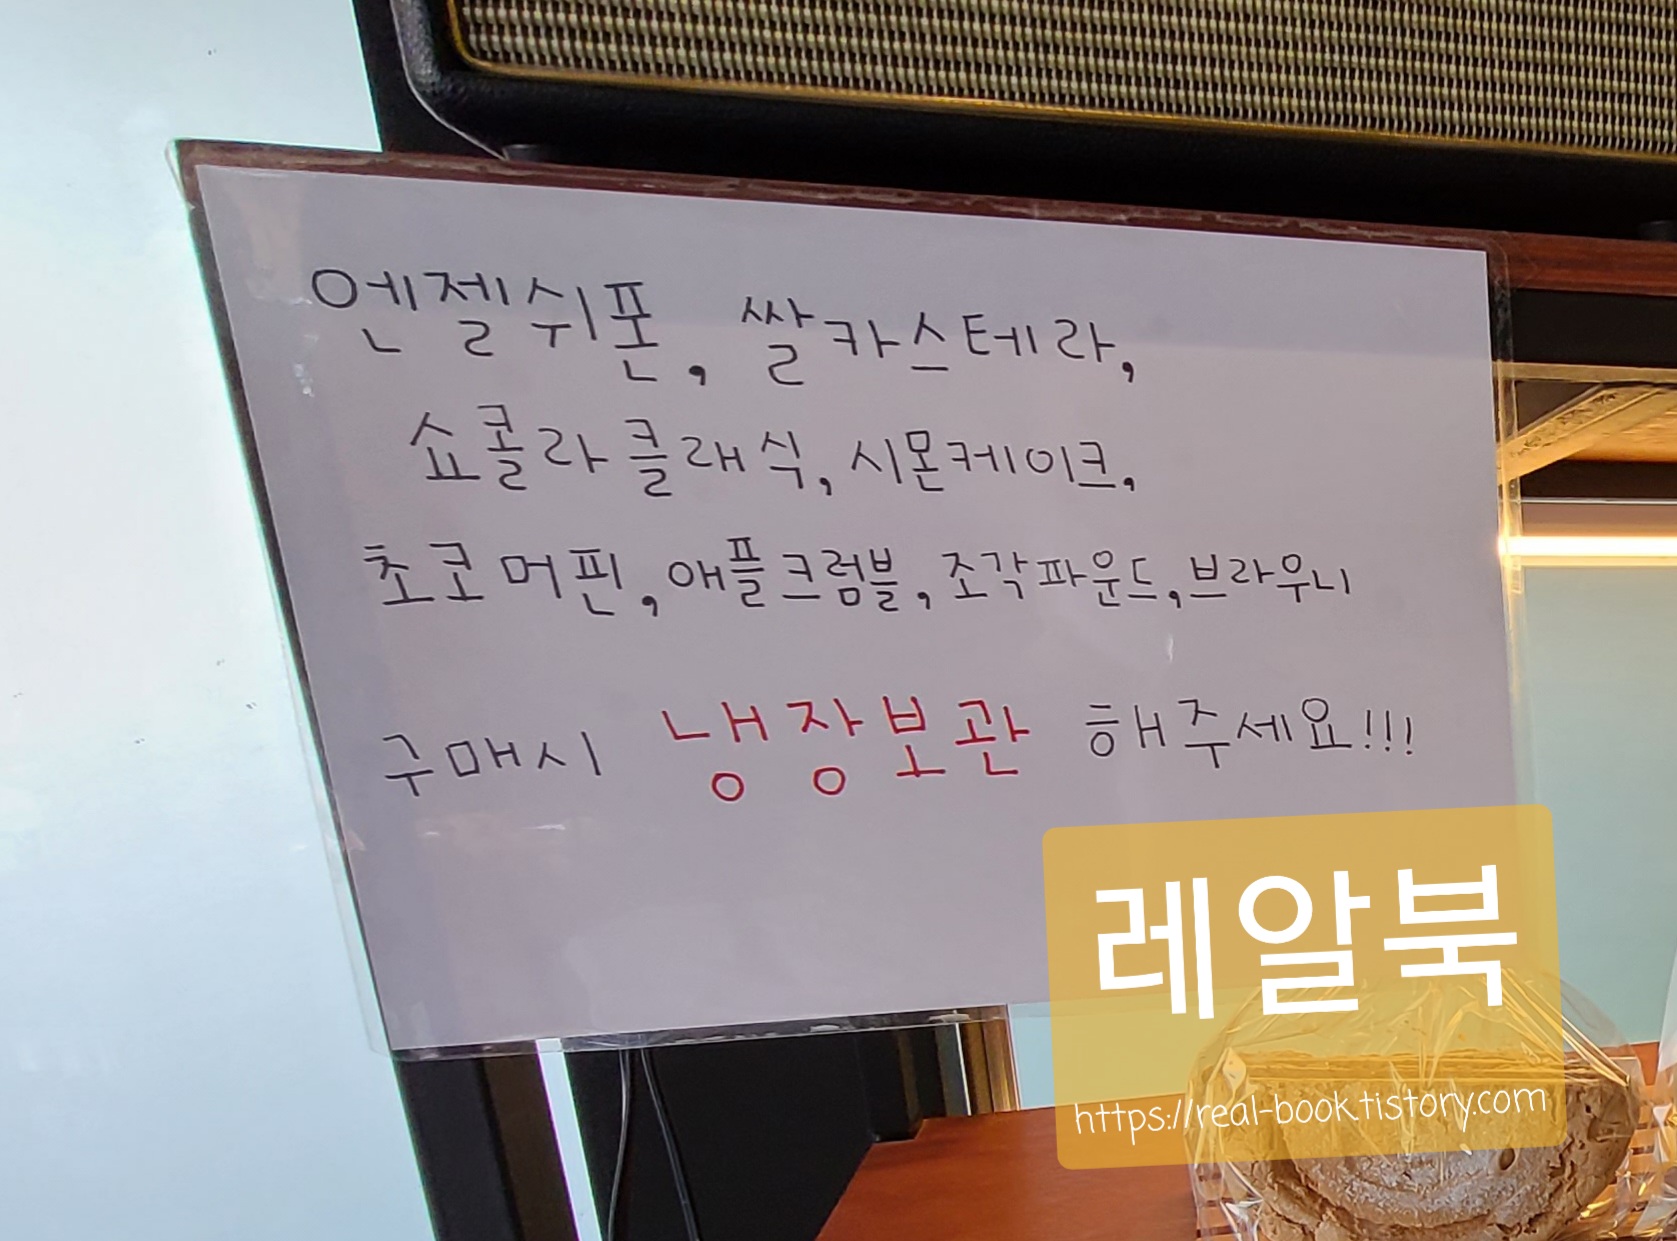 엔젤쉬폰, 쌀카스테라,
쇼콜라클래식, 시몬케이크,
초코머핀, 애플크럼블, 조각파운드, 브라우니
구매시 냉장보관 해주세요!!!
레알북
https://real-book.tistory.com